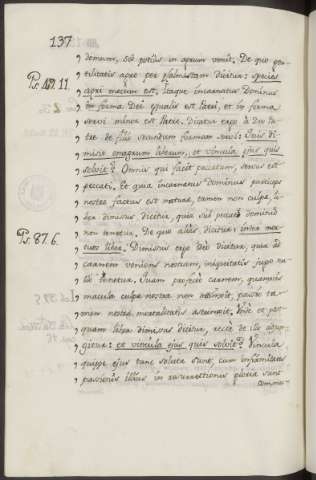 137.
, domum, sed potius in agrum venit. De quo gen-
, tilitatis agro per Psalmistam dicitur: species
Ps. 49. 11. , agri mecum est. Itaque incarnatus Dominus
, in forma Dei equalis est Patri, et in forma
, servi minor est Patre. Dicatur ergo à Deo Pa-
, tre de filio secundum formam servi: Quis di-
, misit onagrum liberum, et vincula ejus quis
, solvit? Omnis qui facit peccatum, servus est
, peccati. Et quia incarnatus Dominus particeps
, nostrae factus est naturae, tamen non culpae, li-
, ber dimissus dicitur, quia sub peccati dominio
, non tenetur. De quo aliàs dicitur: inter mor-
Ps. 87. 6. , tuos liber. Dimissus ergo liber dicitur, quia ad
, carnem veniens nostram, iniquitatis jugo nul-
, lo tenetur. Quam profectò carnem, quamvis
, macula culpae nostrae non attingit, passio ta-
, men nostrae mortalitatis astringit. Unde et post-
, quam liber dimissus dicitur, rectè de illo adjun-
, gitur: et vincula ejus quis solvit? Vincula
, quippe ejus tunc soluta sunt, cum infirmitates
, passionis illius in resurrectionis gloria sunt
commu-